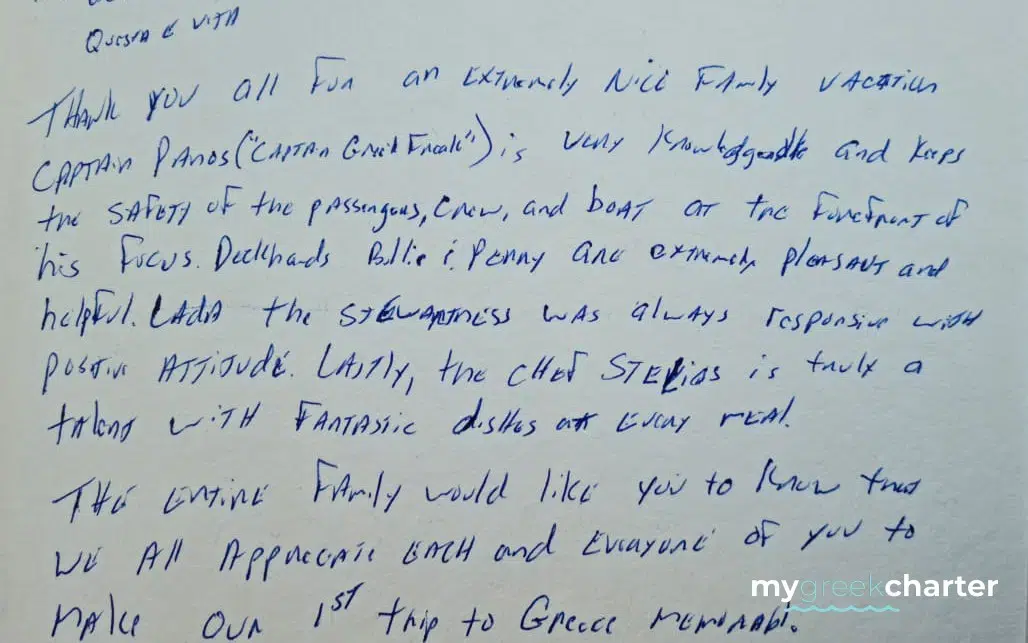 Questa è vita
Thank you all for an extremely nice family vacation
Captain Panos ("Captain Greek Freak") is very knowledgeable and keeps
the safety of the passengers, crew, and boat at the forefront of
his focus. Deckhands Billie & Penny are extremely pleasant and
helpful. Lada the stewartness was always responsive with
positive attitude. Lastly, the chef Stelios is truly a
talent with fantastic dishes at every meal.
The entire family would like you to know that
we all appreciate each and everyone of you to
make our 1st trip to Greece memorabl.
mygreekcharter